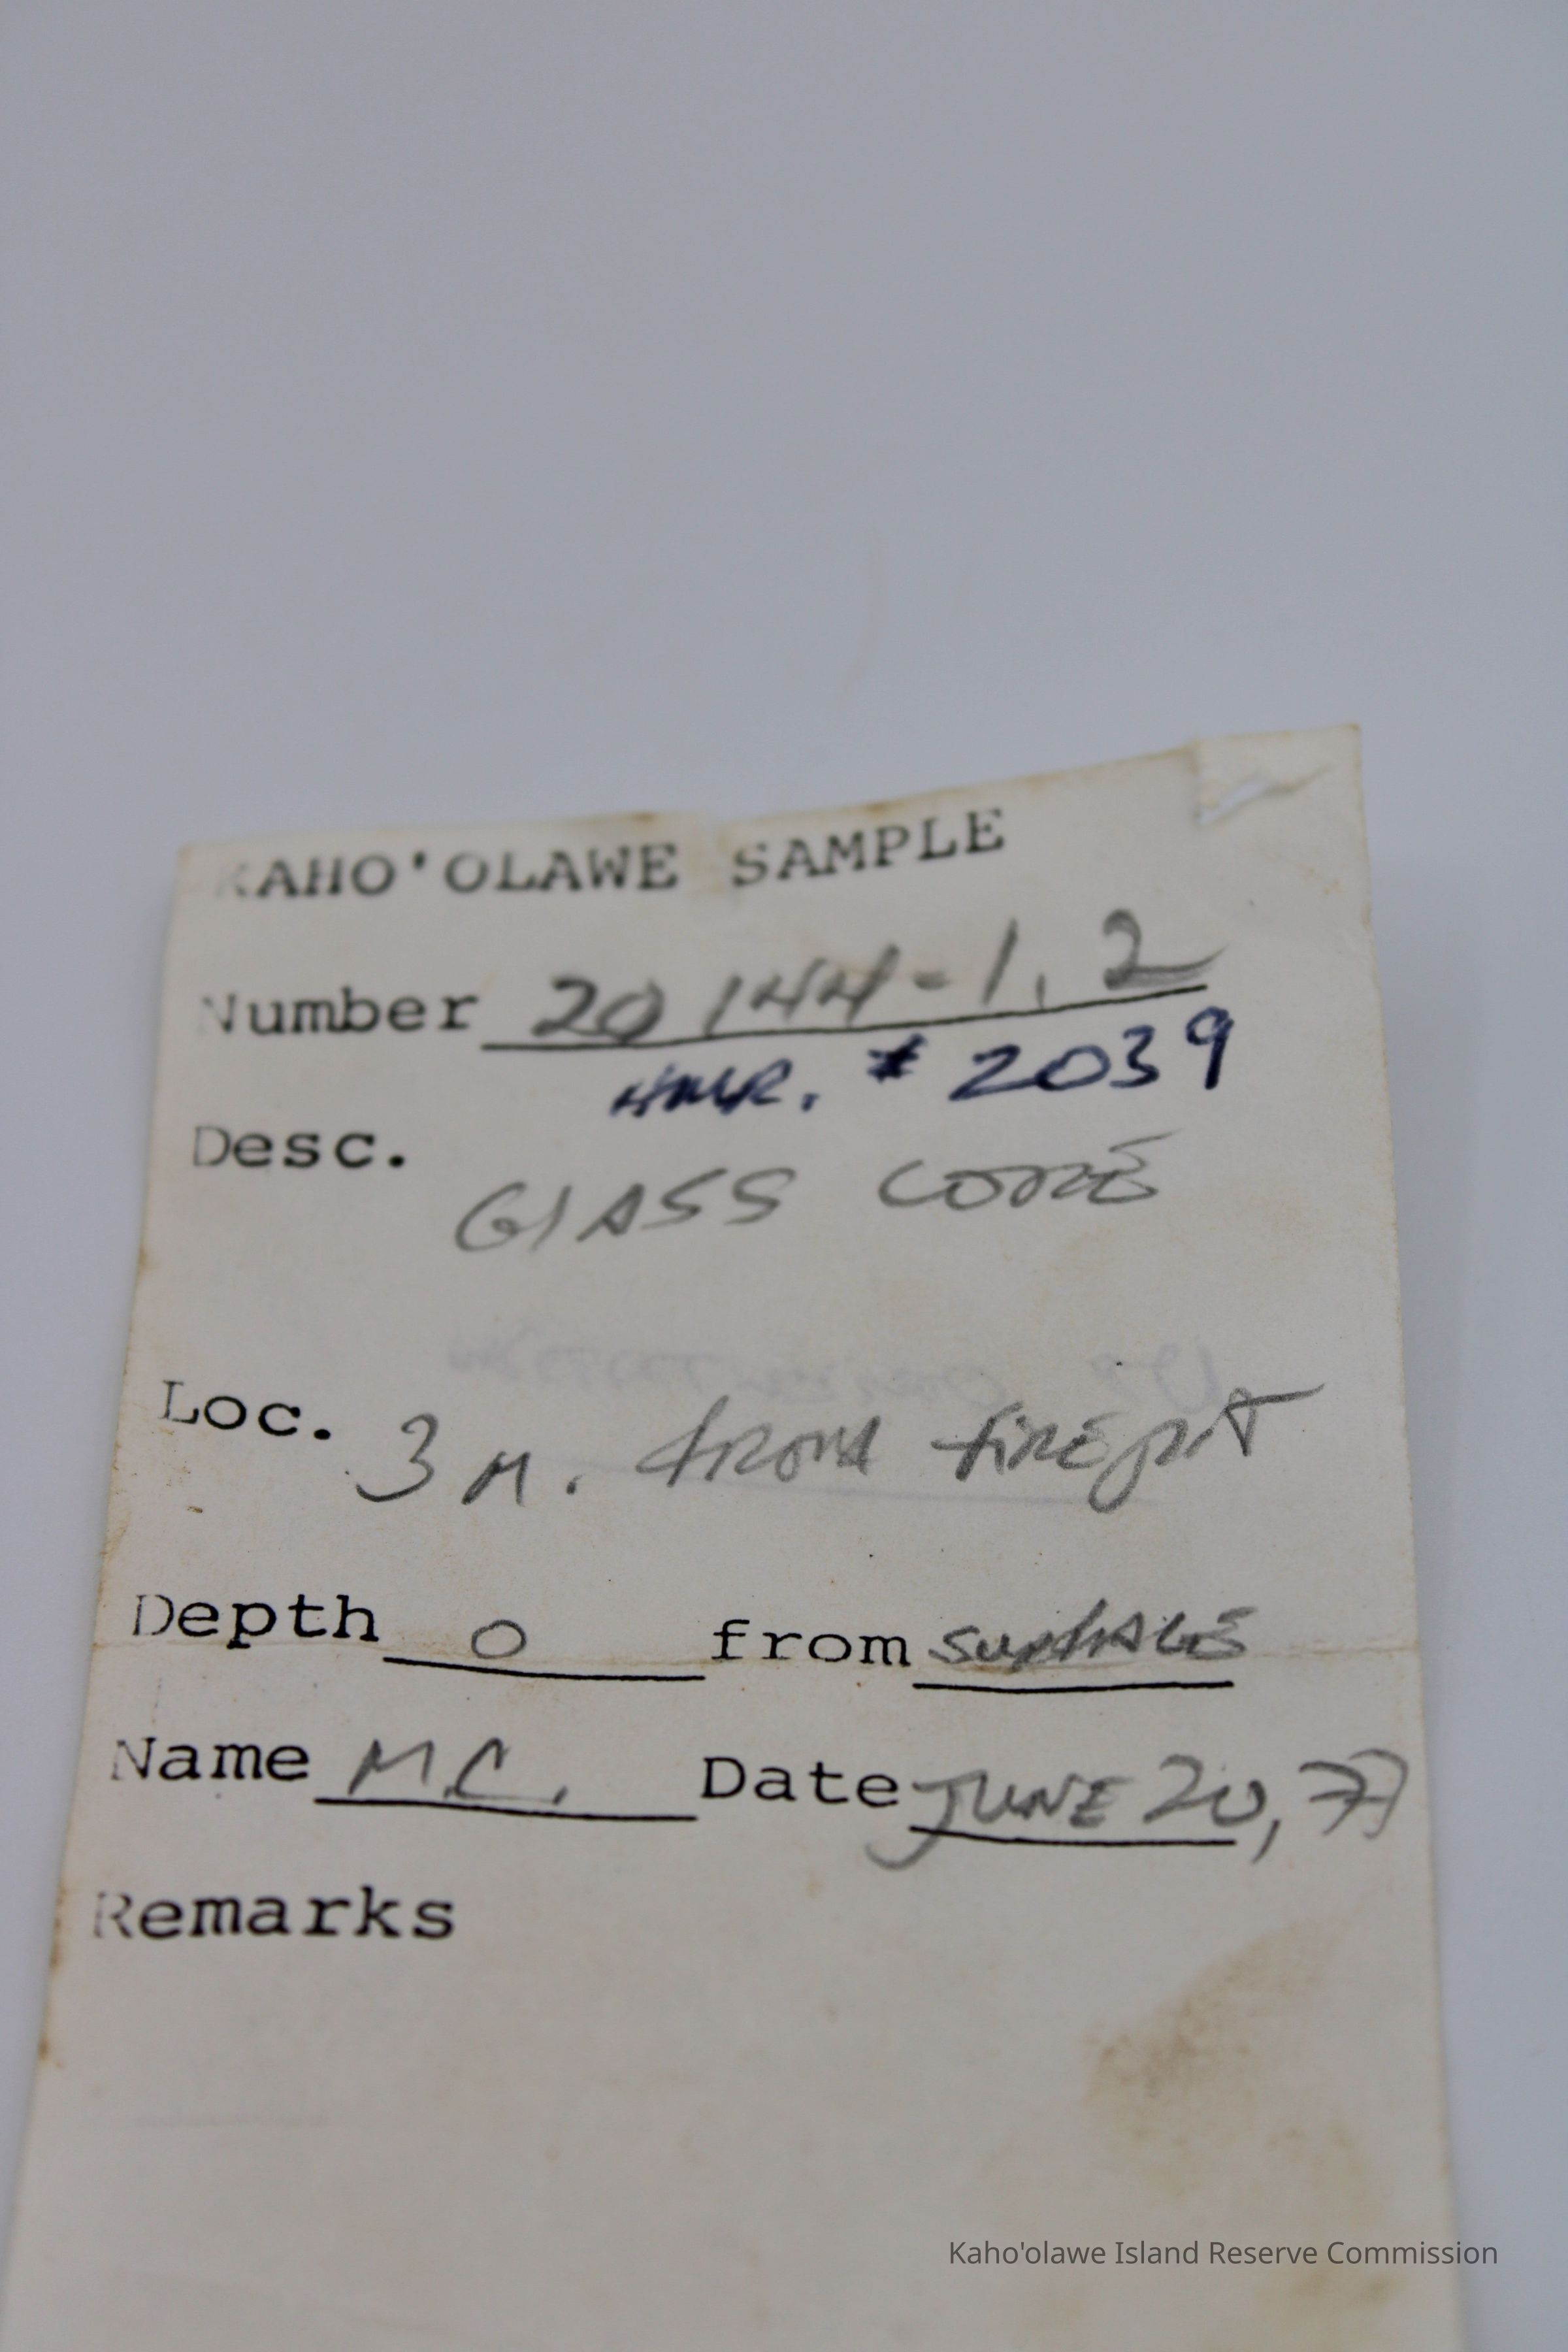 KAHO'OLAWE SAMPLE
Number 20 144-1, 2
# 2039
Desc.
GLASS CORE
Loc. 3 M. from firepit
Depth 0 from surface
Name M.C. Date JUNE 20, 77
Remarks
Kaho'olawe Island Reserve Commission